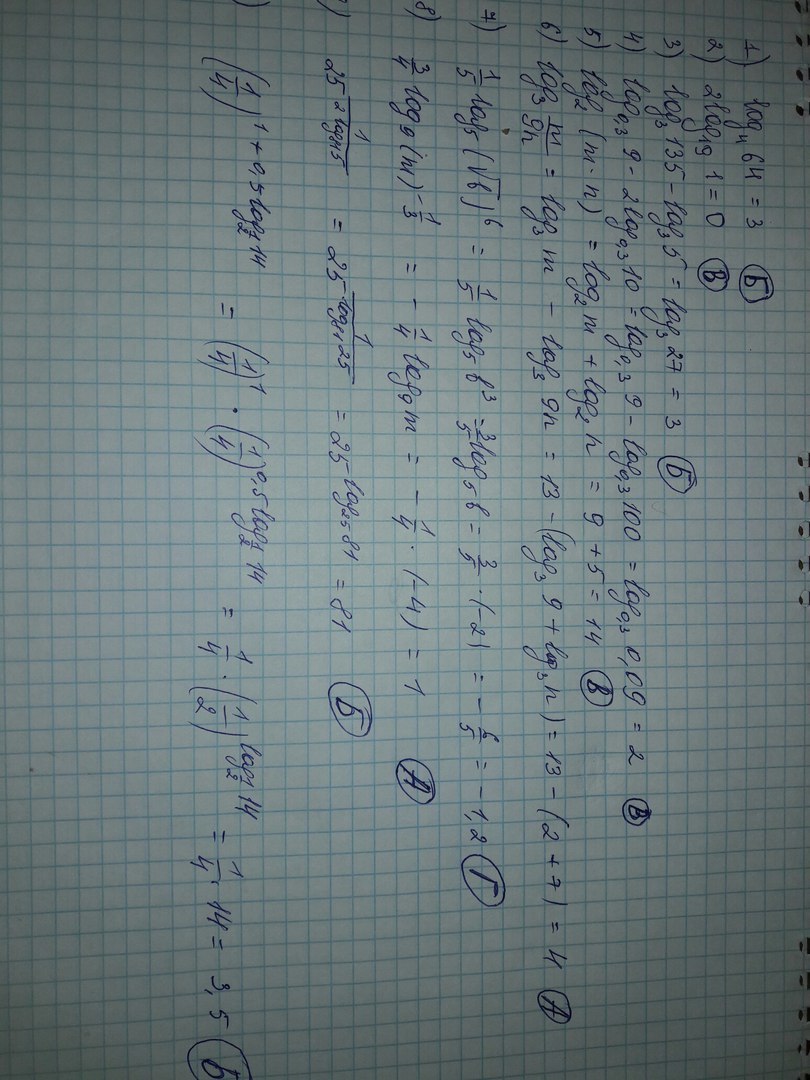 1) log₄ 64 = 3 (Б)
2) 2log₁₉ 1 = 0 (В)
3) log₃ 135 - log₃ 5 = log₃ 27 = 3 (Б)
4) log₀,₃ 9 - 2log₀,₃ 10 = log₀,₃ 9 - log₀,₃ 100 = log₀,₃ 0,09 = 2 (В)
5) log₂ (m·n) = log₂ m + log₂ n = 9 + 5 = 14 (В)
6) log₃ m/9n = log₃ m - log₃ 9n = 13 - (log₃ 9 + log₃ n) = 13 - (2 + 7) = 4 (А)
7) 1/5 log₅ (√b)⁶ = 1/5 log₅ b³ = 3/5 log₅ b = 3/5 · (-2) = - 6/5 = -1,2 (Г)
8) 3/4 log₉ (m)^(-1/3) = - 1/4 log₉ m = - 1/4 · (-4) = 1 (А)
= 25^(log₂₅ 81) = 81 (Б)
(1/4)^(1 + 0,5log_(1/2) 14) = (1/4)¹ · (1/4)^(0,5log_(1/2) 14) = 1/4 · (1/2)^(log_(1/2) 14) = 1/4 · 14 = 3,5 (Б)